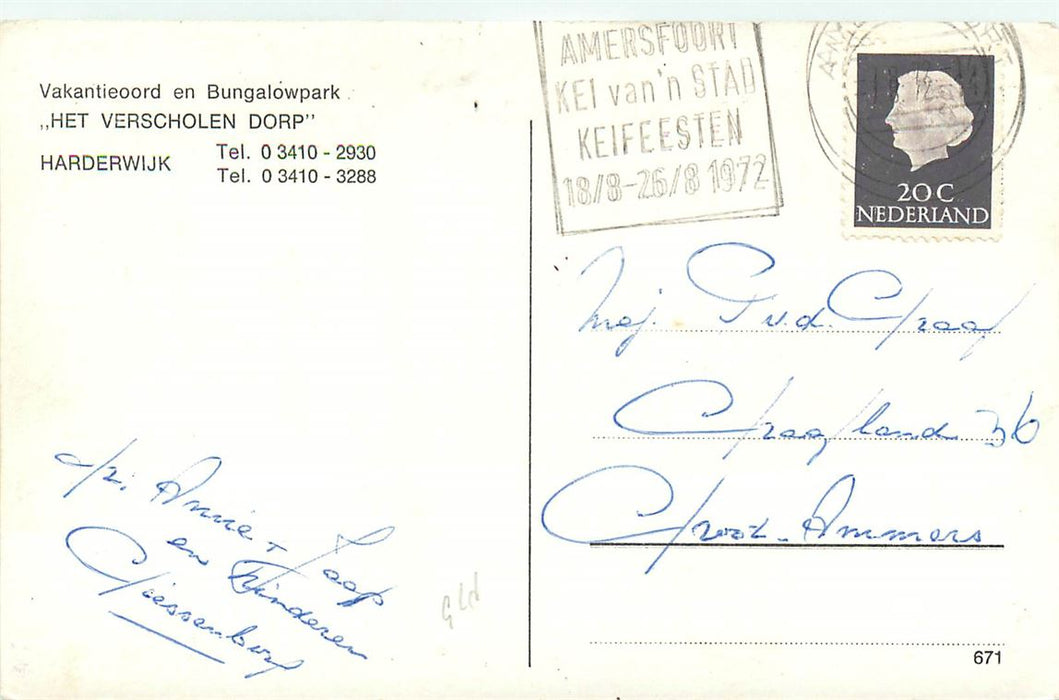 Vakantieoord en Bungalowpark
„HET VERSCHOLEN DORP"
HARDERWIJK Tel. 0 3410 - 2930
Tel. 0 3410 - 3288
AMERSFOORT
KEI van'n STAD
KEIFEESTEN
18/8-26/8 1972
20 C
NEDERLAND
Mej. G v.d. Graaf
Graafland 36
Groot-Ammers
Annie + Jaap
en Kinderen
Giessenburg
Gld
671